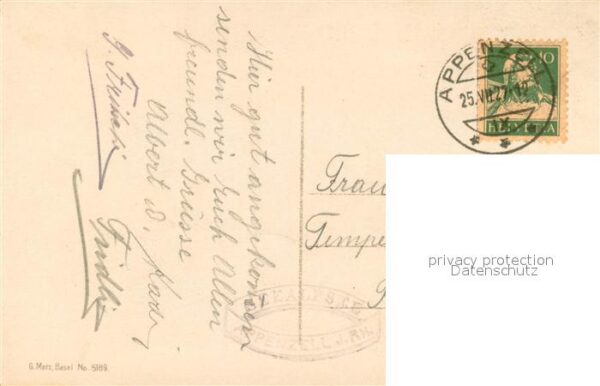 Hier gut angekommen
senden wir Euch Allen
freundl. Grüsse
Albert u.
Fridli
APPENZELL
25.VII.27.12
IX
10
HELVETIA
Frau
Tempe
privacy protection
Datenschutz
APPENZELL
G. Metz, Basel No. 5189.